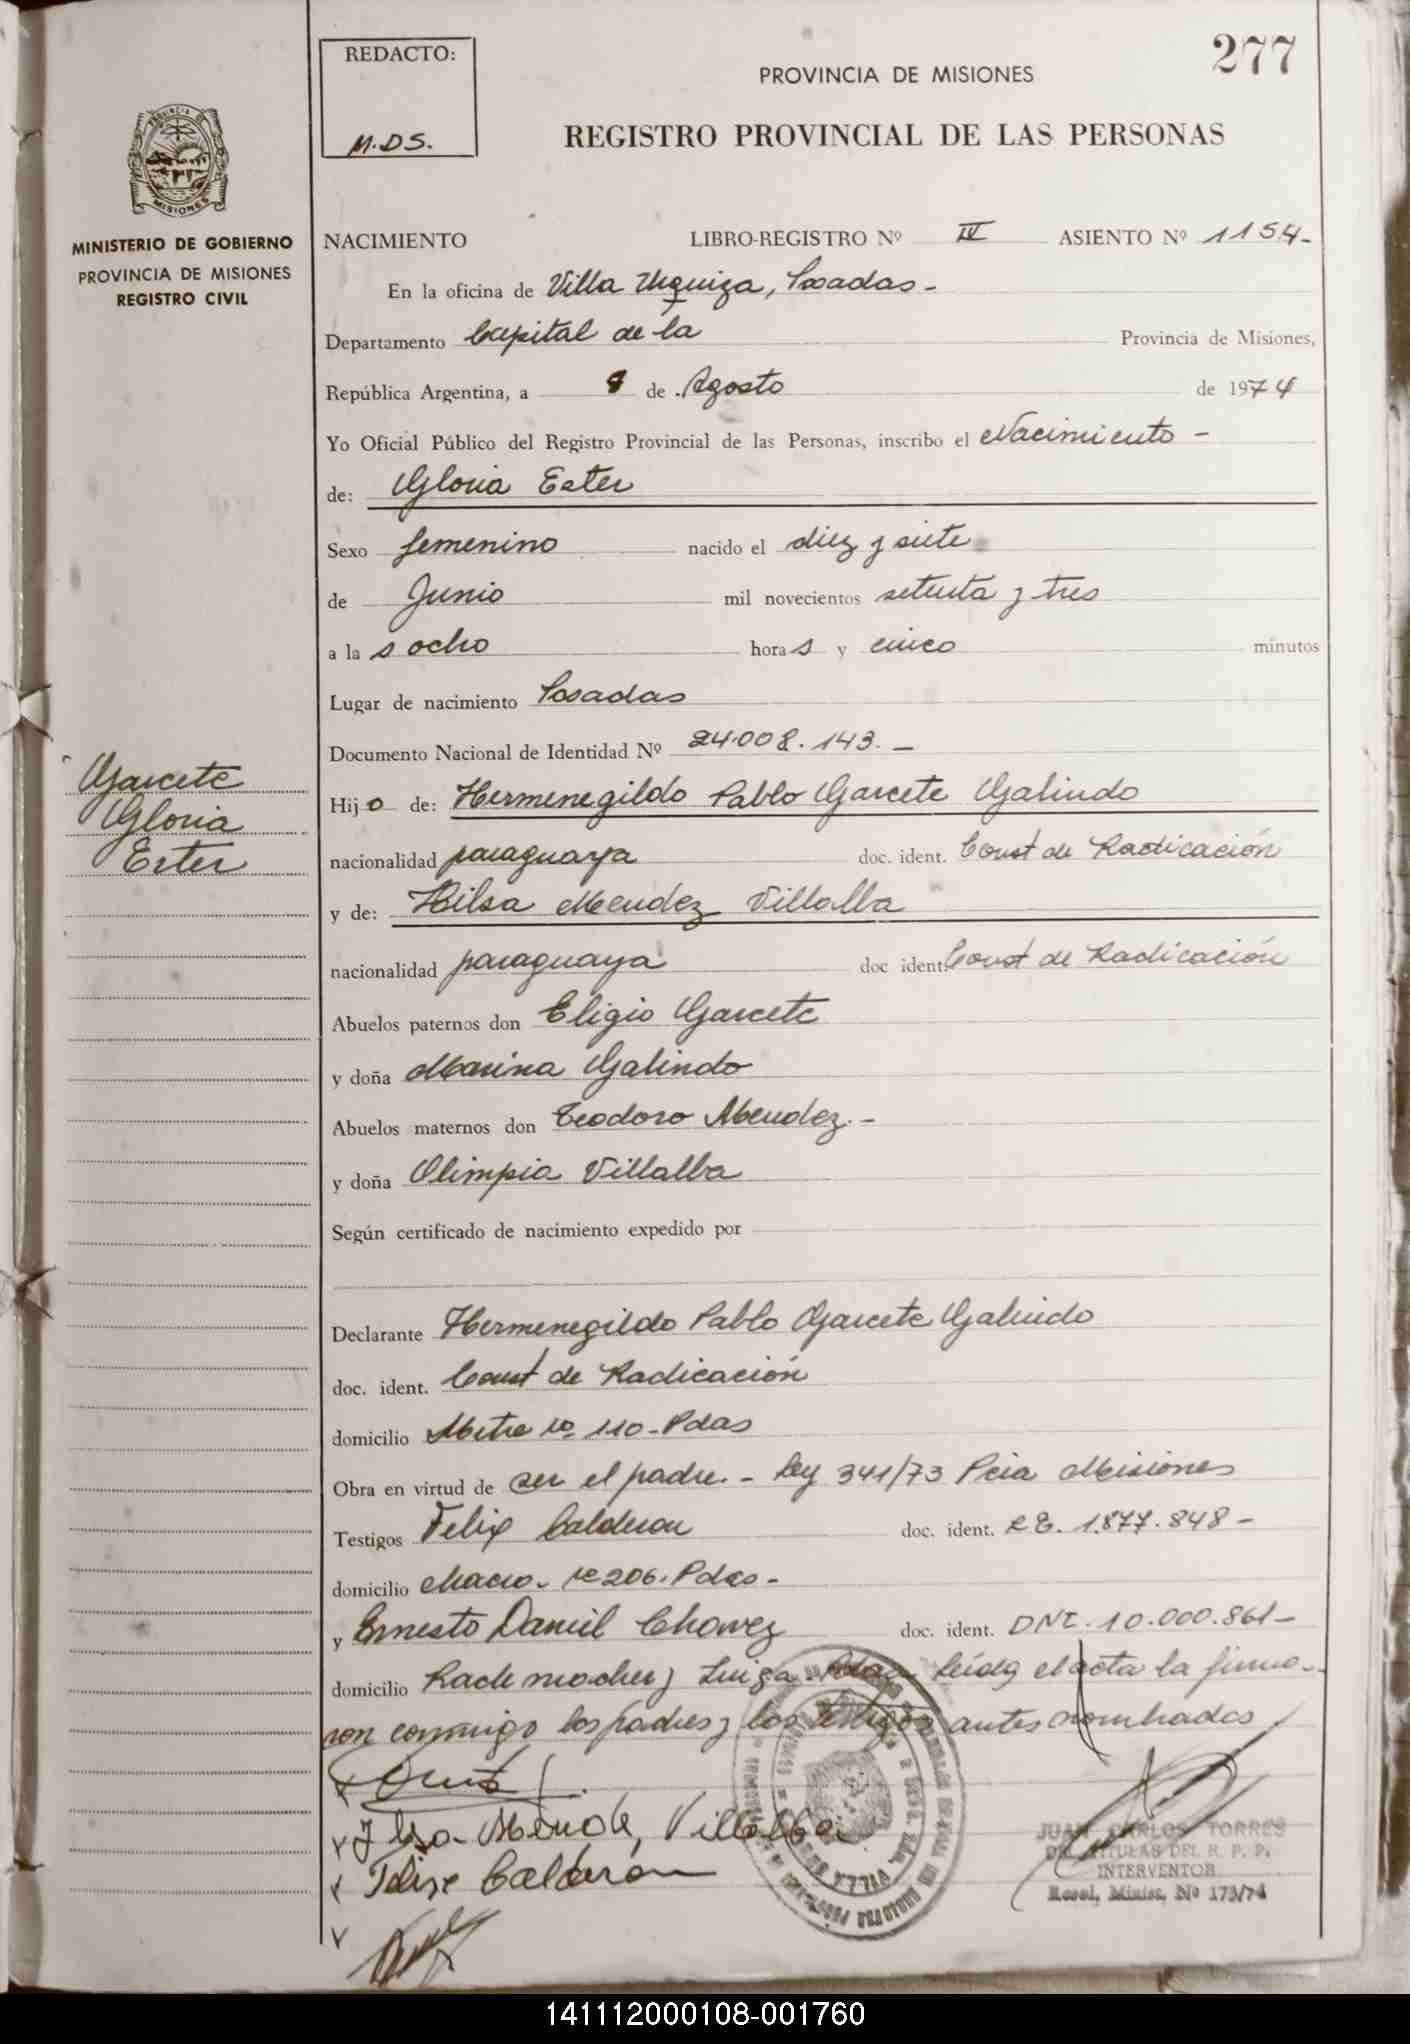 277
REDACTO:
M.D.S.
PROVINCIA DE MISIONES
REGISTRO PROVINCIAL DE LAS PERSONAS
PROVINCIA DE
MISIONES
MINISTERIO DE GOBIERNO
PROVINCIA DE MISIONES
REGISTRO CIVIL
NACIMIENTO LIBRO-REGISTRO Nº IV ASIENTO Nº 1154-
En la oficina de Villa Urquiza, Posadas-
Departamento Capital de la Provincia de Misiones,
República Argentina, a 8 de Agosto de 1974
Yo Oficial Público del Registro Provincial de las Personas, inscribo el Nacimiento -
de: Gloria Ester
Sexo femenino nacido el diez y siete
de Junio mil novecientos setenta y tres
a la s ocho hora s y cinco minutos
Lugar de nacimiento Posadas
Documento Nacional de Identidad Nº 24.008.143.-
Garcete
Gloria
Ester
Hij o de: Hermenegildo Pablo Garcete Galindo
nacionalidad paraguaya doc. ident. Const de Radicación
y de: Hilsa Mendez Villalba
nacionalidad paraguaya doc ident. Const de Radicación
Abuelos paternos don Eligio Garcete
y doña Marina Galindo
Abuelos maternos don Teodoro Mendez.-
y doña Olimpia Villalba
Según certificado de nacimiento expedido por
Declarante Hermenegildo Pablo Garcete Galindo
doc. ident. Const de Radicación
domicilio Mitre Nº 110-Pdas
Obra en virtud de ser el padre.- Ley 341/73 Pcia Misiones
Testigos Felix Calderon doc. ident. LE. 1.877.848-
domicilio Chaco- Nº 206. Pdas-
y Ernesto Daniel Chavez doc. ident. DNI. 10.000.861-
domicilio Rademacher y Leída el acta la firma-
ron conmigo los padres y los testigos antes nombrados
Ilsa Mende, Villalba
Felix Calderón
JUAN CARLOS TORRES
INTERVENTOR
Resol. Minist. Nº 173/74
141112000108-001760